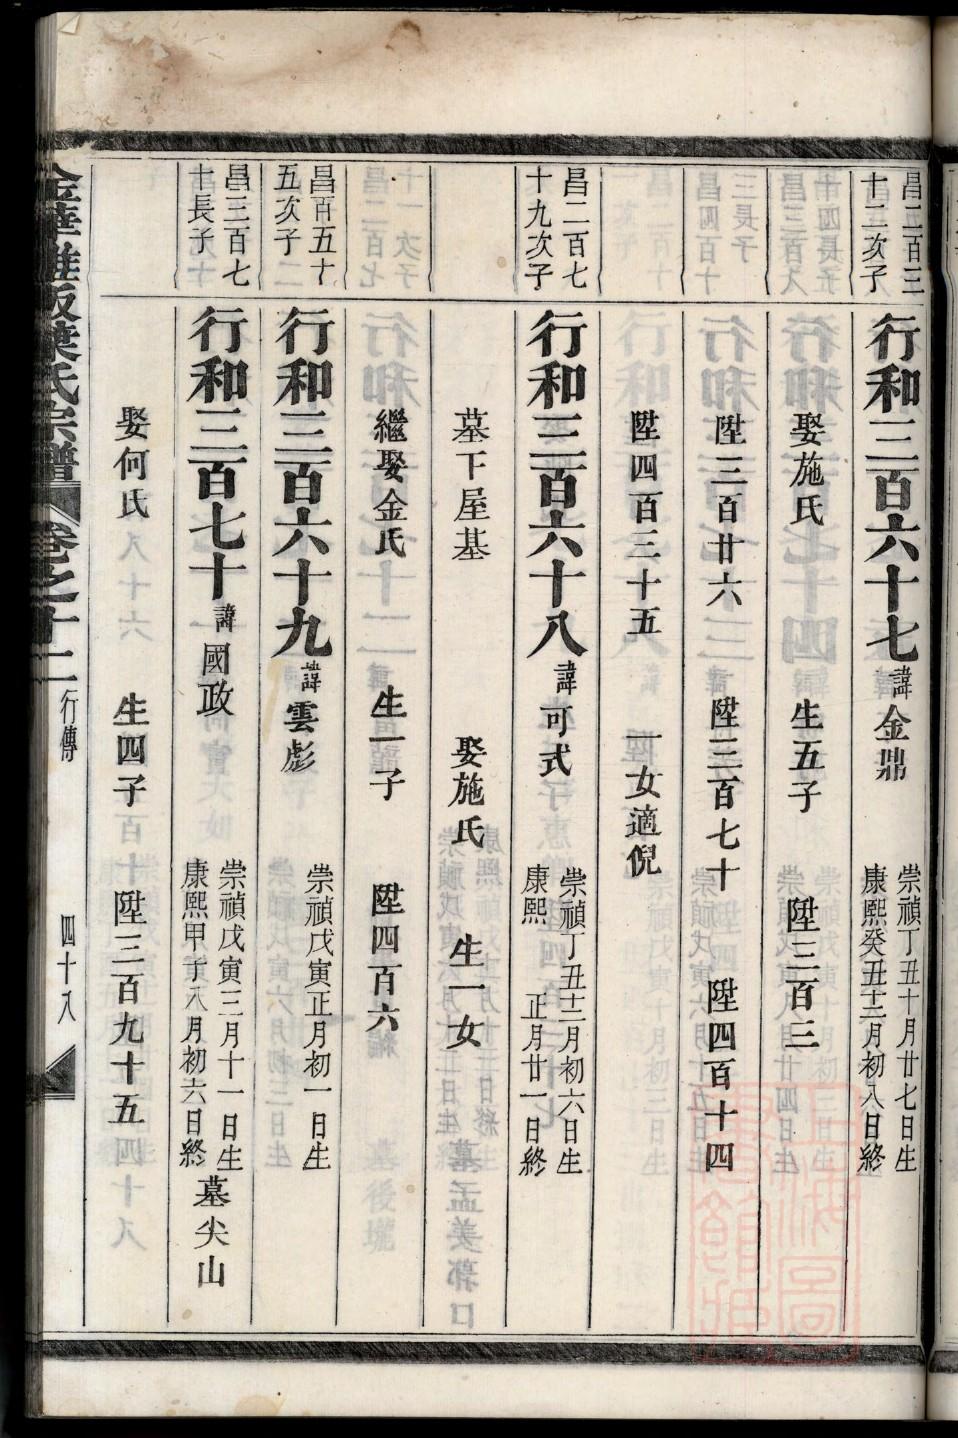 昌五百三
十二次子
行和三百六十七 諱金鼎
崇禎丁丑十月廿七日生
康熙癸丑十二月初八日終
娶施氏 生五子 陞三百三
陞三百廿六 陞三百七十 陞四百十四
陞四百三十五 一女適倪
昌二百七
十九次子
行和三百六十八 諱可式
崇禎丁丑十二月初六日生
康熙 正月廿一日終
墓下屋基 娶施氏 生一女
繼娶金氏 生一子 陞四百六
昌百五十
五次子
行和三百六十九 諱雲彪
崇禎戊寅正月初一日生
昌三百七
十長子
行和三百七十 諱國政
崇禎戊寅三月十一日生
康熙甲子八月初六日終
墓尖山
娶何氏 生四子 陞三百九十五
葉氏宗譜 卷之十二 行傳 四十八